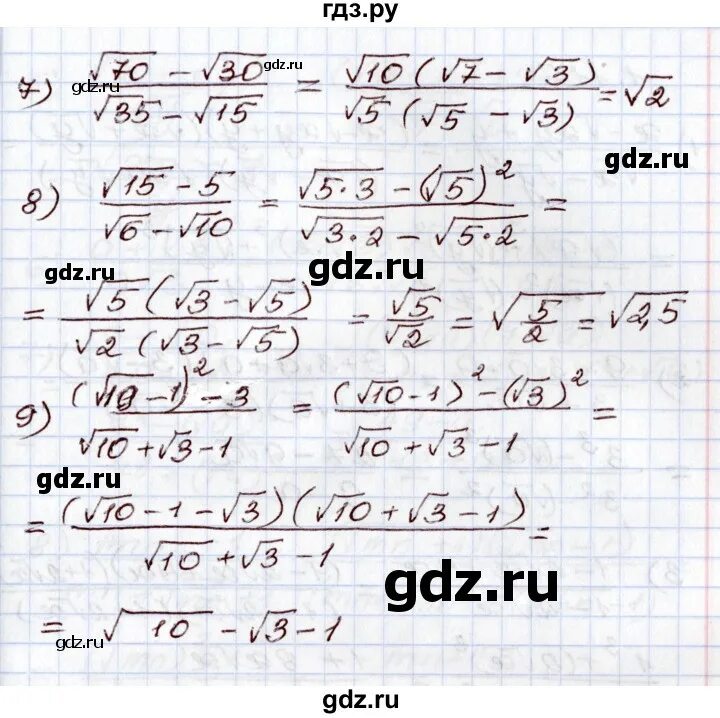 гдз.ру
7) (√70 - √30)/(√35 - √15) = √10(√7 - √3)/√5(√5 - √3) = √2
gdz.ru
gdz.ru
gdz.ru
8) (√15 - 5)/(√6 - √10) = (√5·3 - (√5)²)/(√3·2 - √5·2) =
gdz.ru
gdz.ru
= √5(√3 - √5)/√2(√3 - √5) = √5/√2 = √5/2 = √2,5
9) ((√10 - 1)² - 3)/(√10 + √3 - 1) = ((√10 - 1)² - (√3)²)/(√10 + √3 - 1) =
gdz.ru
gdz.ru
= (√10 - 1 - √3)(√10 + √3 - 1)/(√10 + √3 - 1) =
gdz.ru
= √10 - √3 - 1
gdz.ru
gdz.ru